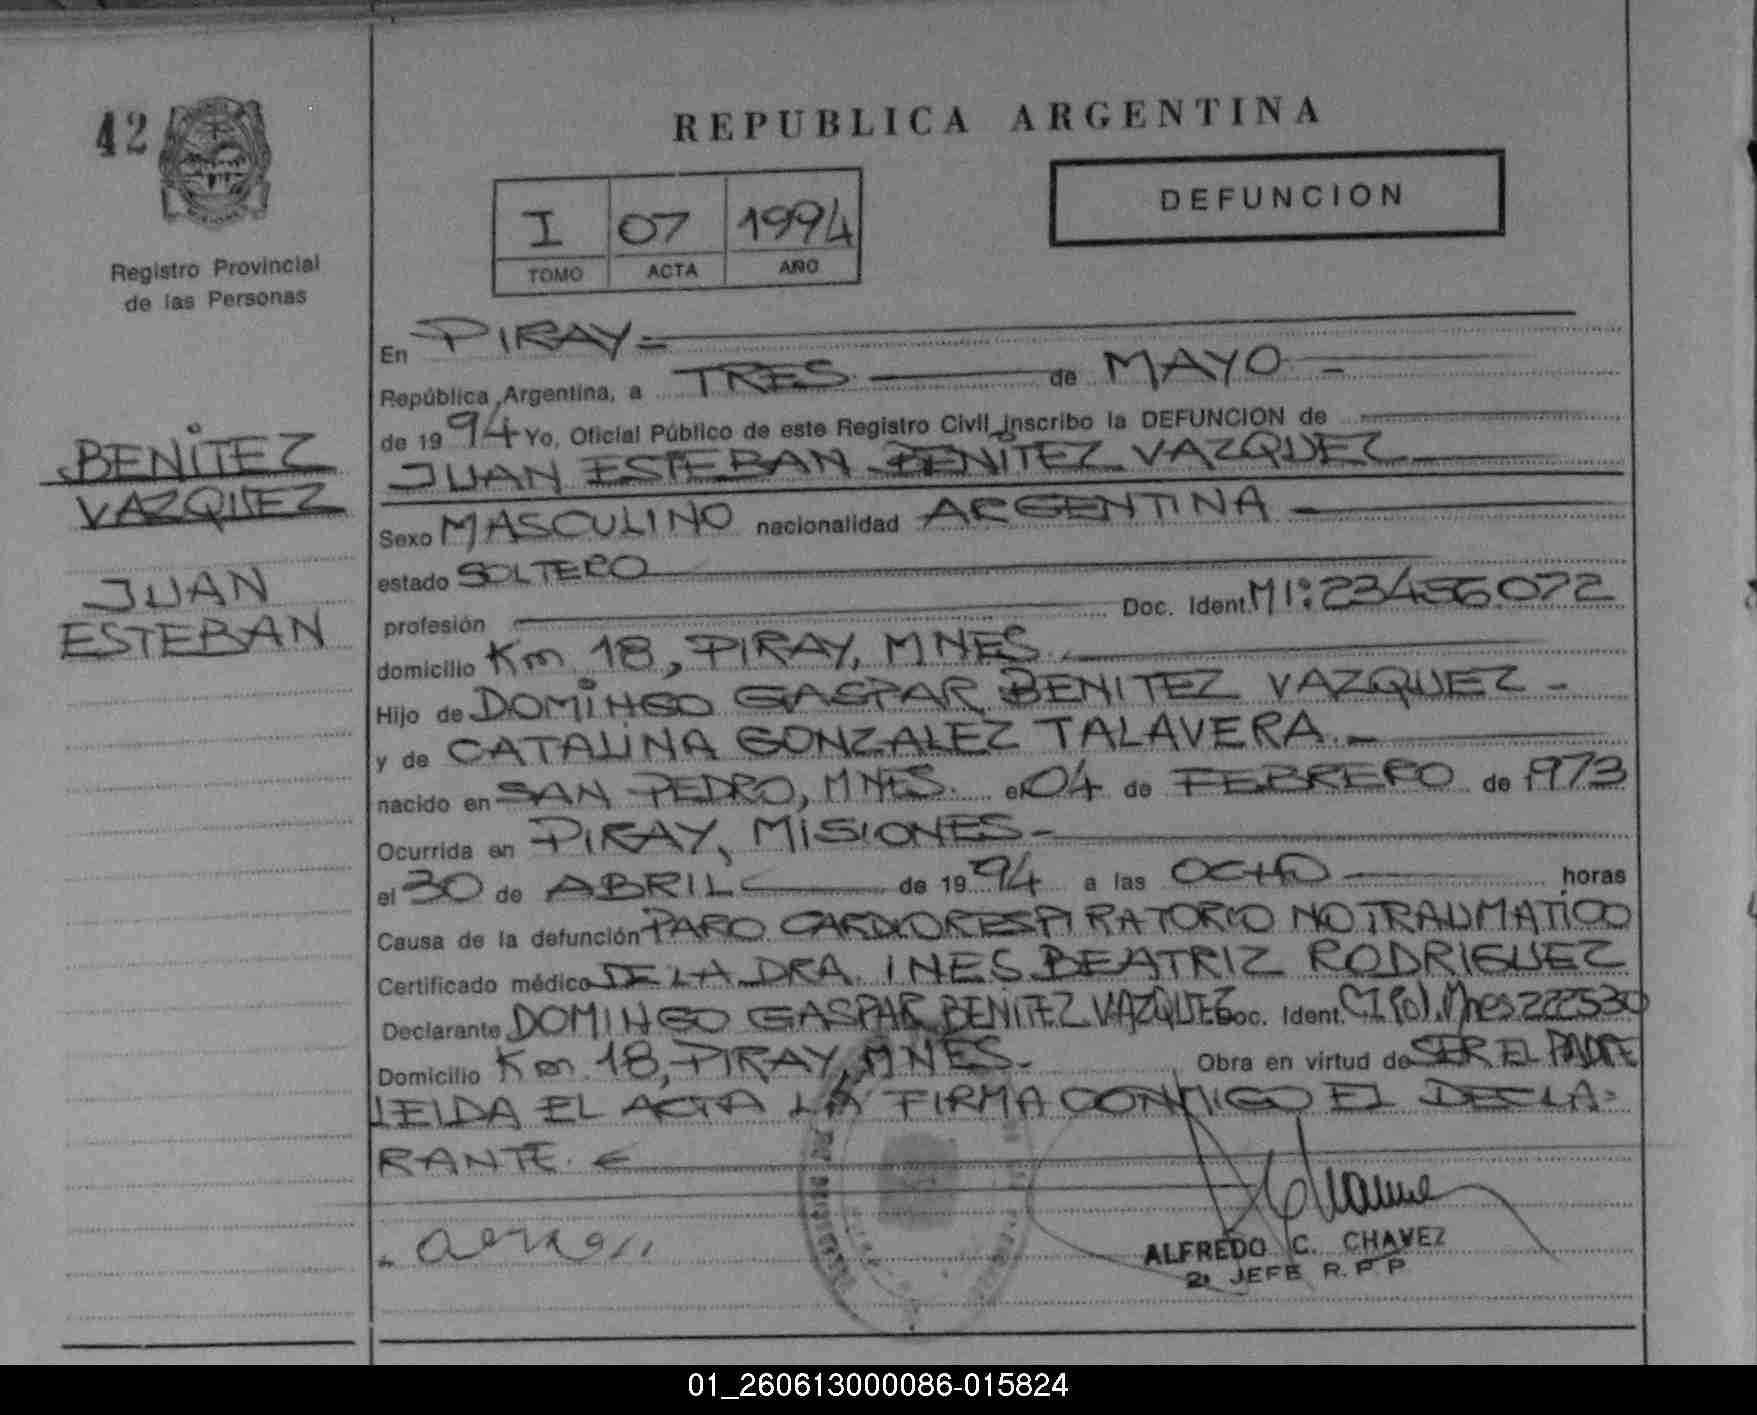 42
Registro Provincial
de las Personas
BENITEZ
VAZQUEZ
JUAN
ESTEBAN
REPUBLICA ARGENTINA
I 07 1994
TOMO ACTA AÑO
DEFUNCION
En PIRAY=
República Argentina, a TRES de MAYO
de 1994 Yo, Oficial Público de este Registro Civil inscribo la DEFUNCION de
JUAN ESTEBAN BENITEZ VAZQUEZ
Sexo MASCULINO nacionalidad ARGENTINA
estado SOLTERO
profesión Doc. Ident. MI: 23456.072
domicilio Km 18, PIRAY, MNES.
Hijo de DOMINGO GASPAR BENITEZ VAZQUEZ -
y de CATALINA GONZALEZ TALAVERA.
nacido en SAN PEDRO, MNES. el 04 de FEBRERO de 1973
Ocurrida en PIRAY, MISIONES-
el 30 de ABRIL de 1994 a las OCHO horas
Causa de la defunción PARO CARDIORESPIRATORIO NO TRAUMATICO
Certificado médico DE LA DRA. INES BEATRIZ RODRIGUEZ
Declarante DOMINGO GASPAR BENITEZ VAZQUEZ Doc. Ident. CI.Pol.Mnes 222530
Domicilio Km 18, PIRAY, MNES. Obra en virtud de SER EL PADRE
LEIDA EL ACTA LA FIRMA CONMIGO EL DECLA=
RANTE.
ALFREDO C. CHAVEZ
2º JEFE R.P.P
01_260613000086-015824